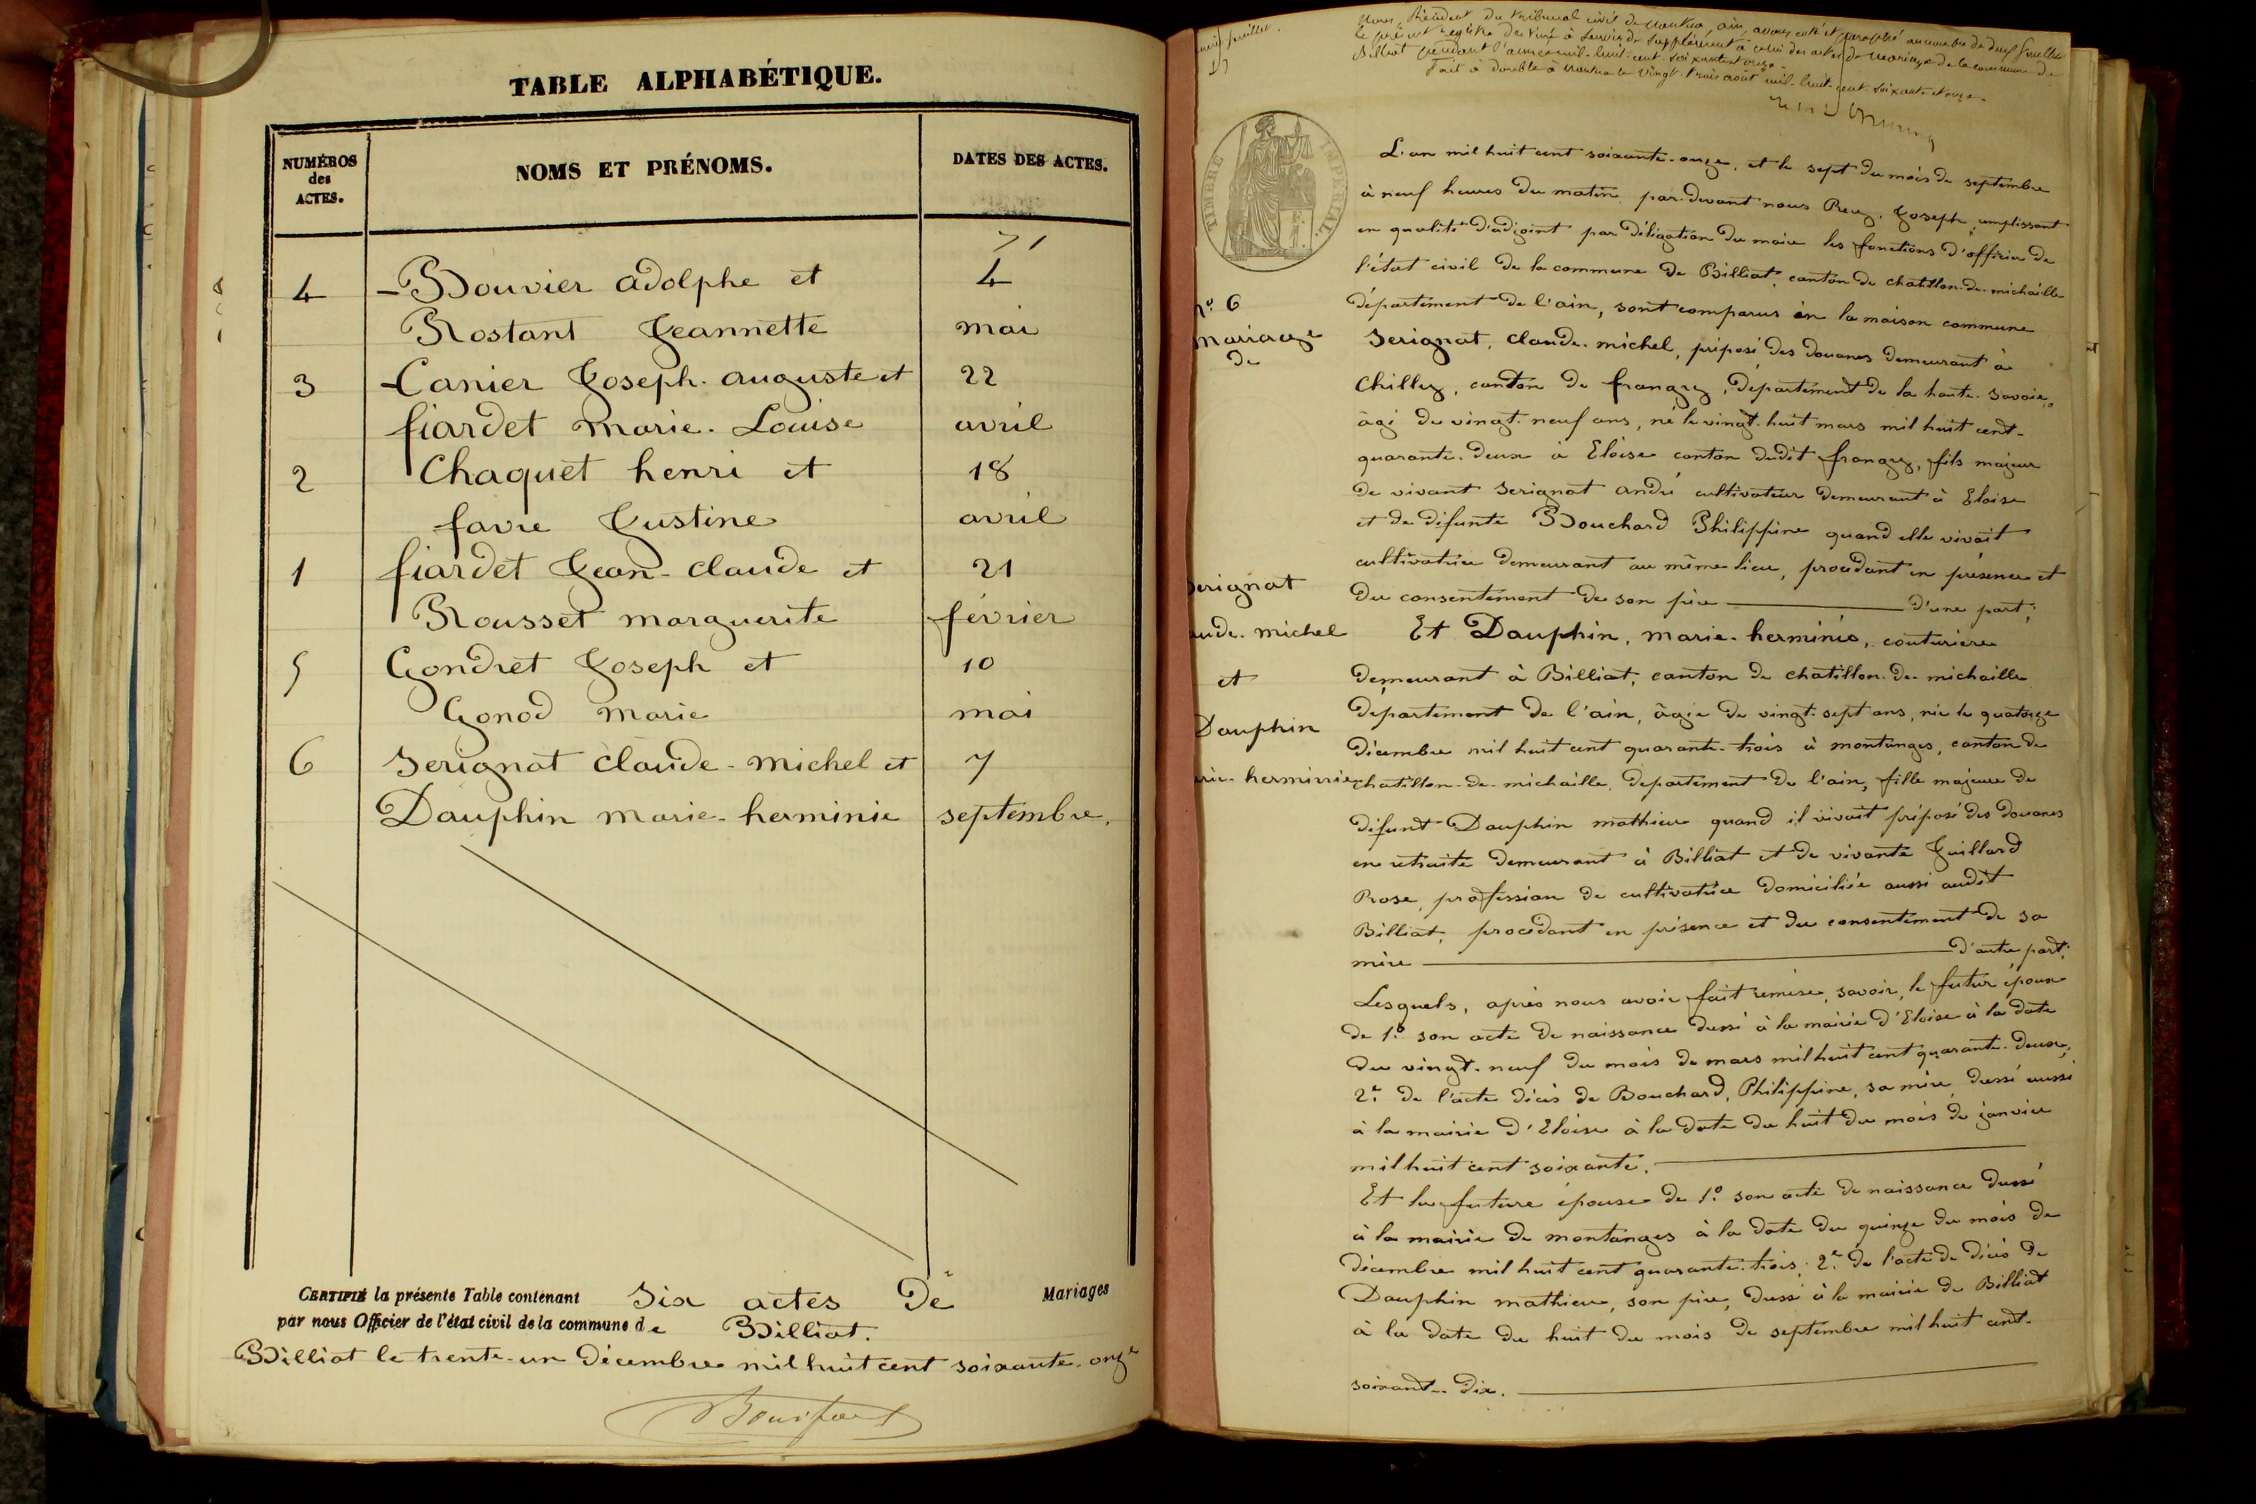 TABLE ALPHABÉTIQUE.
NUMÉROS
des
ACTES.
NOMS ET PRÉNOMS.
DATES DES ACTES.
71
4 Bouvier adolphe et 4
Rostant Jeannette mai
3 Canier Joseph. auguste et 22
fiardet marie. Louise avril
2 Chaquet henri et 18
favre Justine avril
1 fiardet Jean-claude et 21
Rousset marguerite février
5 Gondret Joseph et 10
Gonod marie mai
6 Serignat claude-michel et 7
Dauphin marie-herminie septembre.
CERTIFIÉ la présente Table contenant six actes De Mariages
par nous Officier de l'état civil de la commune de Billiat.
Billiat le trente-un Décembre mil huit cent soixante-onze
feuillet.
Nous, Président du tribunal civil de Nantua, ain, avons coté et paraphé au nombre de deux feuillets
le présent registre destiné à servir de supplément à celui des actes de mariage de la commune de
Billiat pendant l'année mil-huit-cent soixante et onze.
Fait à double à Nantua le vingt-trois août mil-huit-cent-soixante et onze.
TIMBRE IMPÉRIAL
L'an mil huit cent soixante-onze, et le sept du mois de septembre
à neuf heures du matin, par-devant nous Joseph, emplissant
en qualité d'adjoint par délégation du maire les fonctions d'officier de
l'état civil de la commune de Billiat, canton de chatillon-de-michaille
département de l'ain, sont comparus en la maison commune
Serignat, claude-michel, préposé des douanes demeurant à
Chilly, canton de frangy, département de la haute-savoie,
âgé de vingt-neuf ans, né le vingt-huit mars mil huit cent-
quarante-deux à Eloise canton dudit frangy, fils majeur
de vivant Serignat andré cultivateur demeurant à Eloise
et de défunte Bouchard Philippine quand elle vivait
cultivatrice demeurant au même lieu, procédant en présence et
du consentement de son père d'une part;
Et Dauphin, marie-herminie, couturière
demeurant à Billiat, canton de chatillon-de-michaille
département de l'ain, âgée de vingt-sept ans, née le quatorze
décembre mil huit cent quarante-trois à montanges, canton de
chatillon-de-michaille, département de l'ain, fille majeure de
défunt Dauphin mathieu quand il vivait préposé des douanes
en retraite demeurant à Billiat et de vivante Juillard
Rose, profession de cultivatrice domiciliée aussi audit
Billiat, procédant en présence et du consentement de sa
mère d'autre part;
Lesquels, après nous avoir fait remise, savoir, le futur époux
de 1º son acte de naissance dressé à la mairie d'Eloise à la date
du vingt-neuf du mois de mars mil huit cent quarante-deux;
2º de l'acte décès de Bouchard, Philippine, sa mère, dressé aussi
à la mairie d'Eloise à la date du huit du mois de janvier
mil huit cent soixante.
Et la future épouse de 1º son acte de naissance dressé
à la mairie de montanges à la date du quinze du mois de
décembre mil huit cent quarante-trois; 2º de l'acte de décès de
Dauphin mathieu, son père, dressé à la mairie de Billiat
à la date du huit du mois de septembre mil huit cent-
soixante-dix.
nº 6
mariage
de
Serignat
aude. michel
et
Dauphin
rie-herminie